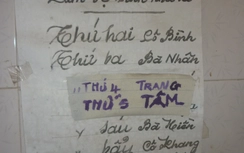 Thứ hai Cô Bình
Thứ ba Bà Nhân
"THỨ 4 TRANG
THỨ 5 TÂM
" sáu Bà Hiền
" bẩy Cô Khang